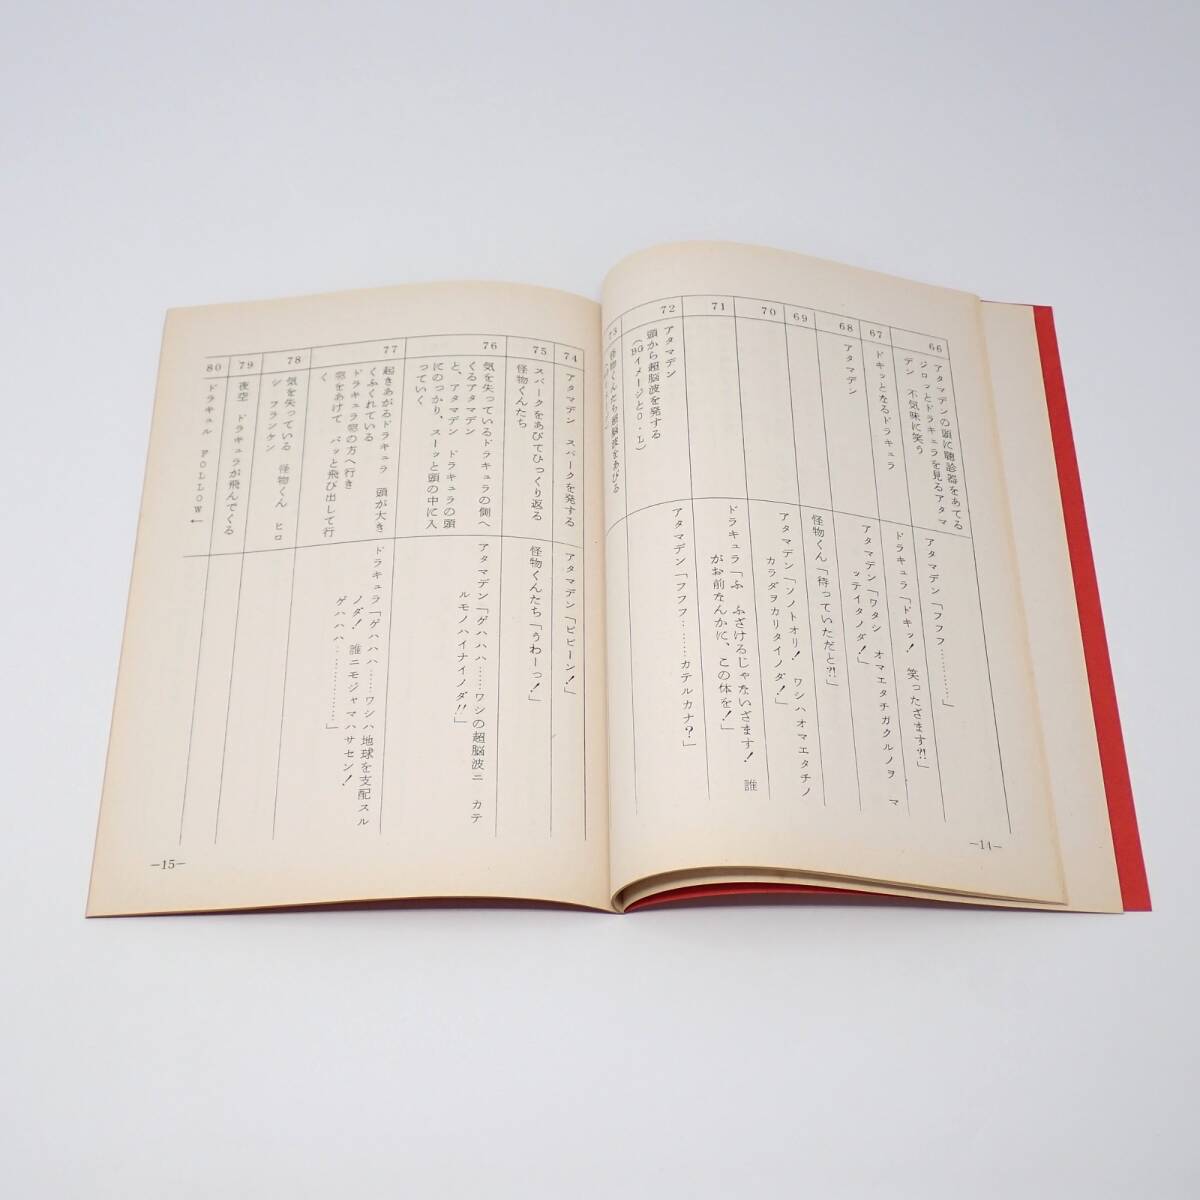 66
アタマデンの頭に聴診器をあてる
ジロッとドラキュラを見るアタマ
デン　不気味に笑う
アタマデン「フフフ…………」
67
ドキッとなるドラキュラ
ドラキュラ「ドキッ！　笑ったざます?!」
68
アタマデン
アタマデン「ワタシ　オマエタチガクルノヲ　マ
ッテイタノダ！」
69
怪物くん「待っていただと?!」
70
アタマデン「ソノトオリ！　ワシハオマエタチノ
カラダヲカリタイノダ！」
71
ドラキュラ「ふ　ふざけるじゃないざます！　誰
がお前なんかに、この体を！」
72
アタマデン
頭から超脳波を発する
（BGイメージとO・L）
アタマデン「フフフ………カテルカナ？」
73
怪物くんたち超脳波をあびる
—14—
74
アタマデン　スパークを発する
アタマデン「ビビーン！」
75
スパークをあびてひっくり返る
怪物くんたち
怪物くんたち「うわーっ！」
76
気を失っているドラキュラの側へ
くるアタマデン
と、アタマデン　ドラキュラの頭
にのっかり、スーッと頭の中に入
っていく
アタマデン「ゲハハハ……ワシの超脳波ニ　カテ
ルモノハイナイノダ!!」
77
起きあがるドラキュラ　頭が大き
くふくれている
ドラキュラ窓の方へ行き
窓をあけて　パッと飛び出して行
く
ドラキュラ「ゲハハハ……ワシハ地球を支配スル
ノダ！　誰ニモジャマハサセン！
ゲハハハ……………」
78
気を失っている　怪物くん　ヒロ
シ　フランケン
79
夜空　ドラキュラが飛んでくる
80
ドラキュル　FOLLOW←
—15—